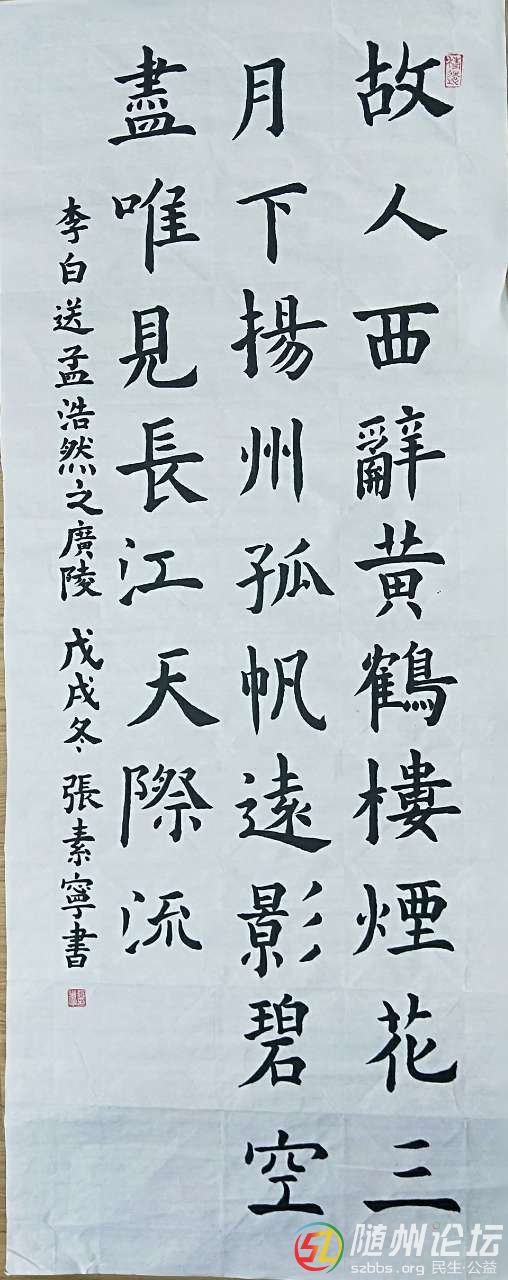 故人西辭黄鶴樓煙花三
月下揚州孤帆遠影碧空
盡唯見長江天際流
李白送孟浩然之廣陵 戊戌冬 張素寧書
随州论坛
szbbs.org 民生·公益